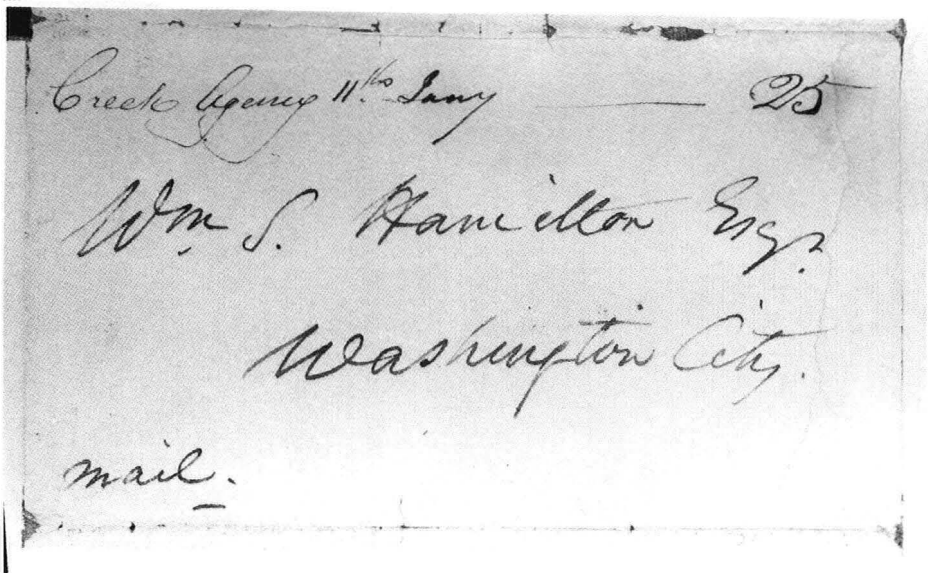 Creek Agency 11th Jany — 25
Wm S. Hamilton Esqr.
Washington City.
mail.